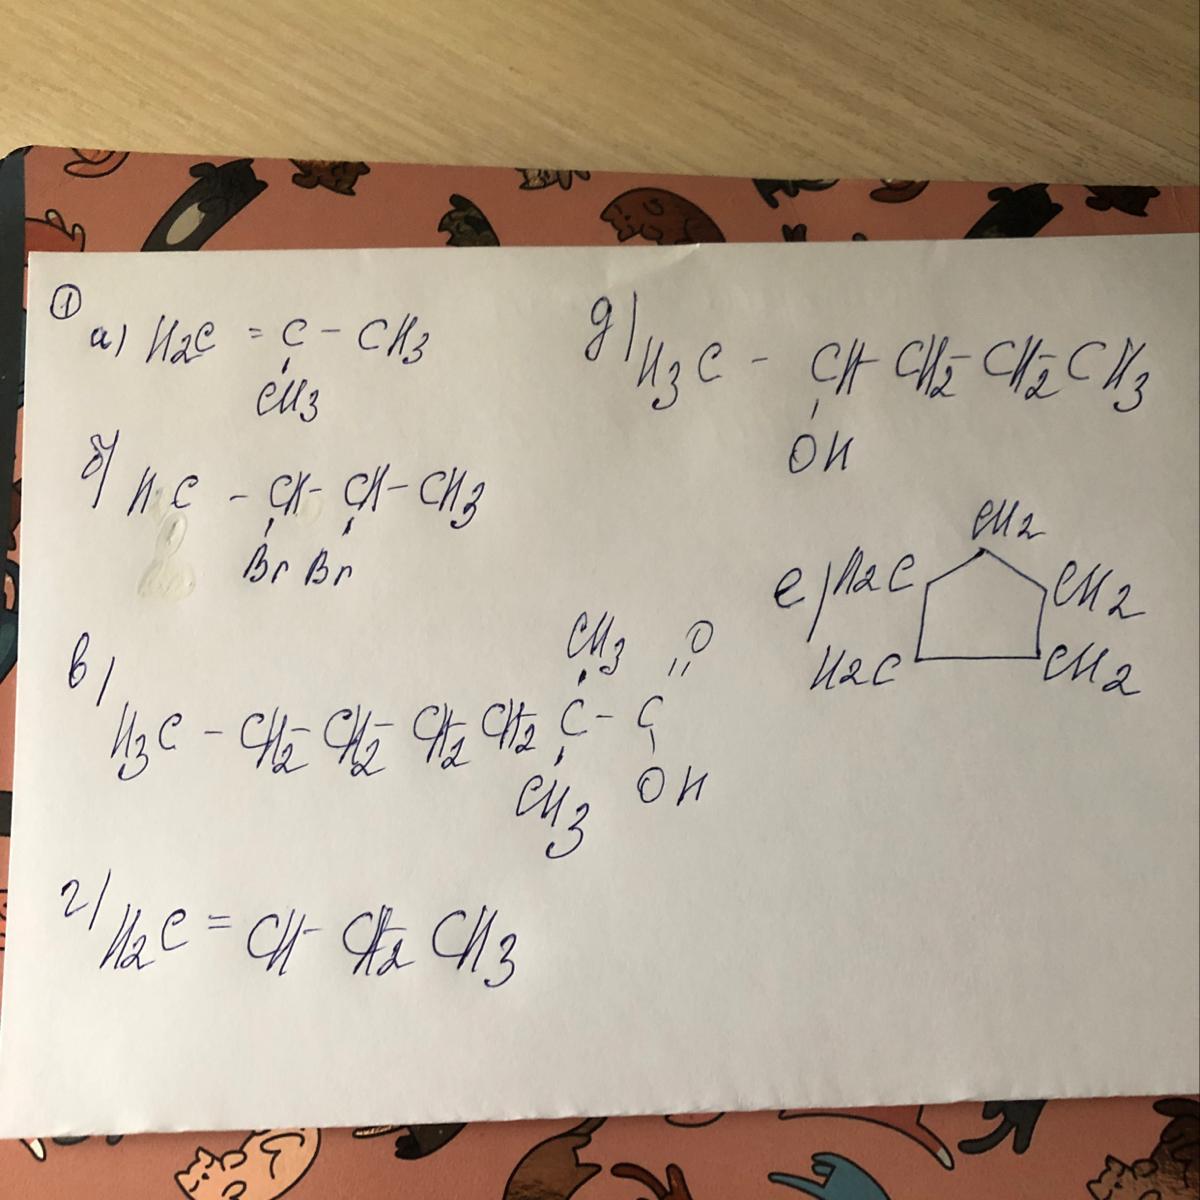 ①
а) H2C = C - CH3
CH3
б) H C - CH - CH - CH3
Br Br
в) CH3 O
H3C - CH2 - CH2 - CH2 CH2 C - C
CH3 OH
г) H2C = CH - CH2 CH3
д) H3C - CH - CH2 - CH2 - CH3
OH
CH2
е) H2C CH2
H2C CH2